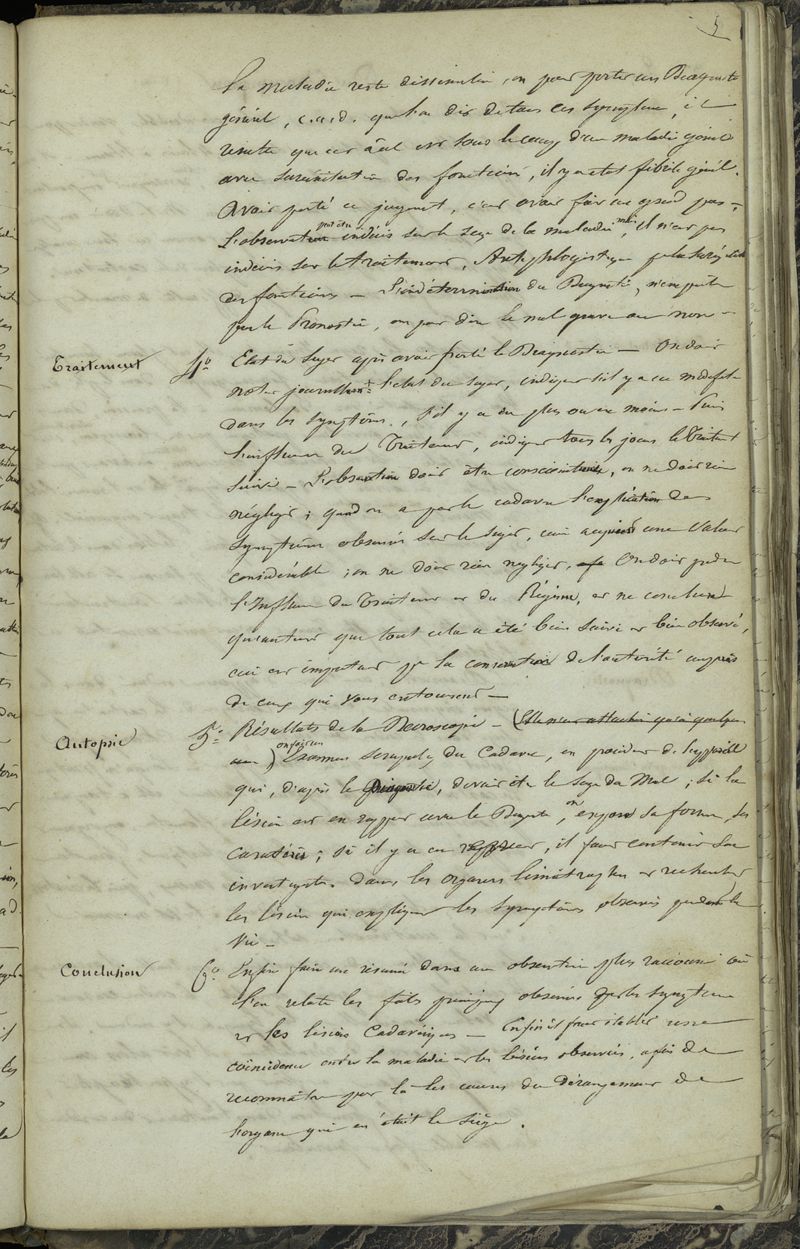 5
la maladie reste dissimulée, on peut porter un Diagnostic
général, c.a.d. que l'on dit de tous ces symptômes, il
résulte que cet a été sous le coup d'une maladie génér
avec surexcitation des fonctions, il y a état fébrile génél.
Avoir porté ce jugement, c'est avoir fait un grand pas,
L'observateur peut être indécis sur le siège de la maladie mais, il n'est pas
indécis sur le traitement, Antiphlogistique
des fonctions — L'indétermination du Diagnostic, n'empêche
pas le Pronostic, on peut dire le mal grave ou non —
Traitement 4° Etat du sujet après avoir porté le Diagnostic — On doit
noter journellemt l'état du sujet, indiquer s'il y a eu modifict
dans les symptômes, s'il y a du plus ou un moins — Puis
l'influence du Traitement, indiquer tous les jours le Traitement
suivi — L'observation doit être consciencieuse, on ne doit rien
négliger; quand on a par le cadavre l'explication des
symptômes observés sur le sujet, cui acquiert une valeur
considérable; on ne doit rien négliger, On doit
l'Influence du Traitement et du Régime, et ne conclure
qu'autant que tout cela a été bien suivi et bien observé,
ceci est important pr la conservation de l'autorité auprès
de ceux qui vous entourent —
Autopsie 5° Résultats de la Nécroscopie — (Elle n'est attachée qu'à quelques
uns) on fait un Examen scrupulx du Cadavre, en procédant de l'appareil
qui, d'après le Diagnostic, devait être le siège du Mal; si la
lésion est en rapport avec le Diagnostic, on expose sa forme, ses
caractères; si il y a eu erreur, il faut continuer son
investigatn dans les organes limitrophes et rechercher
les lésions qui expliquent les symptômes observés pendant la
vie —
Conclusion 6° Enfin faire un résumé dans une observation plus raccourcie où
l'on relate les faits principaux observés par les symptômes
et les lésions Cadavériques — Enfin il faut établir
coïncidence entre la maladie et les lésions observées, afin de
reconnaître par là les causes du Dérangement de
l'organe qui en était le Siège.